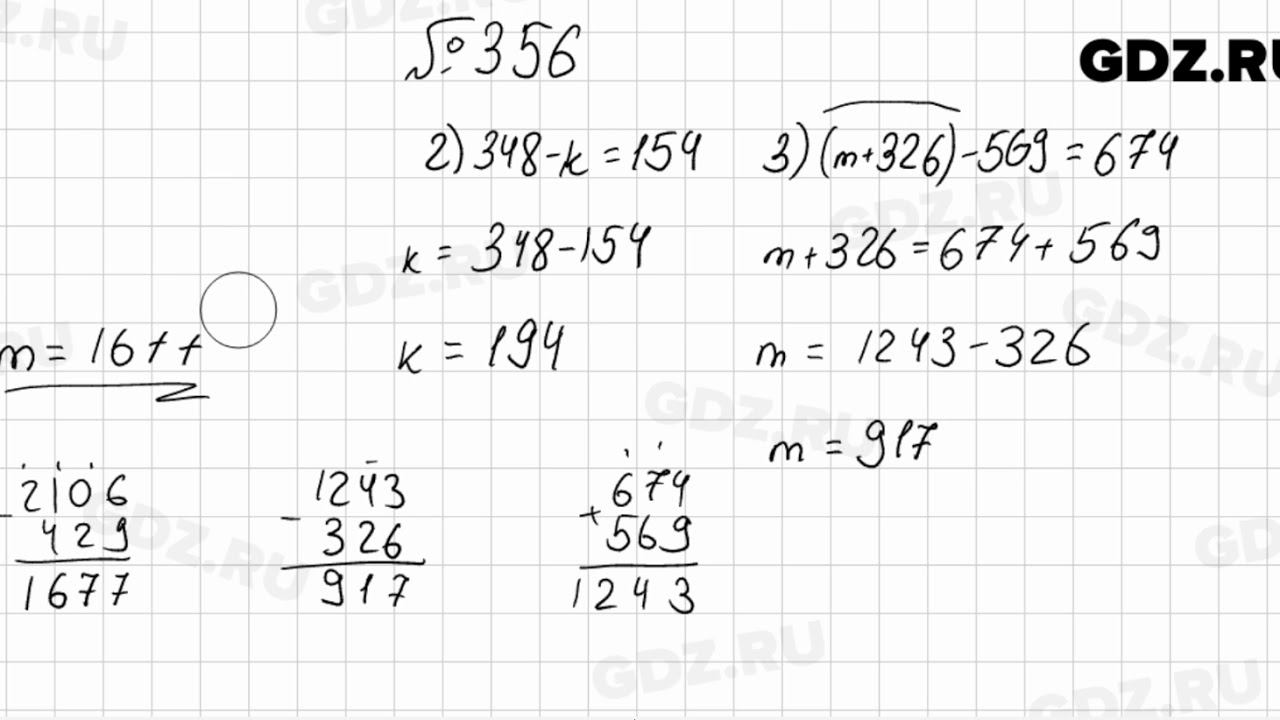 №356
GDZ.RU
2) 348-k = 154
k = 348-154
k = 194
3) (m+326)-569 = 674
m+326 = 674+569
m = 1243-326
m = 917
m = 1677
2106
- 429
1677
1243
- 326
917
674
+ 569
1243
GDZ.RU
GDZ.RU
GDZ.RU
GDZ.RU
GDZ.RU
GDZ.RU
GDZ.RU
GDZ.RU
GDZ.RU